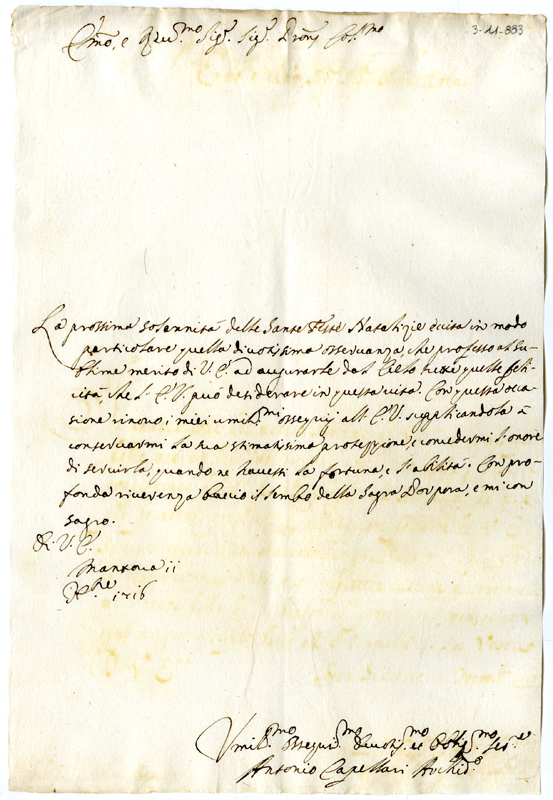 3-11-883
Em̃o, e Reu.mo Sig.r Sig.r Pro͠n Col.mo
La prossima solennità delle Sante Feste Natalizie eccita in modo
particolare quella diuotissima osseruanza, che professo al su-
blime merito di V. E. ad augurarle dal Cielo tutte quelle feli-
cità, che l'E.V. può desiderare in questa uita. Con questa occa-
sione rinouo i miei umil.mi ossequij all'E.V. supplicandola à
conseruarmi la sua stimatissima protezzione, e concedermi l'onore
di seruirla, quando ne hauessi la fortuna, e l'abilità. Con pro-
fonda riuerenza baccio il lembo della Sagra Porpora, e mi con
sagro.
Di V. E.
Mantoua 11
Xbre 1716
Vmil.mo ossequi.mo diuotis.mo et oblig.mo ser.e
Antonio Capellari Archid.o